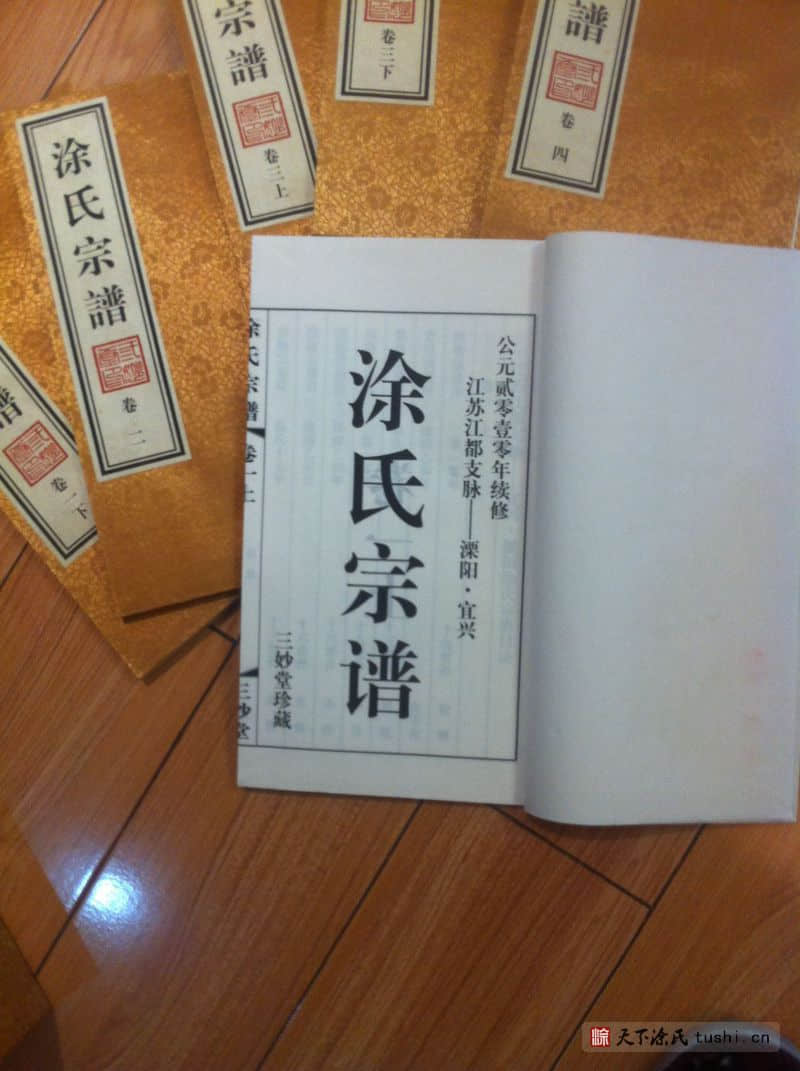 宗譜
卷三上
卷三下
譜
卷四
涂氏宗譜
卷二
譜
卷一下
公元贰零壹零年续修
江苏江都支脉——溧阳·宜兴
涂氏宗谱
三妙堂珍藏
涂氏宗譜
卷一上
三妙堂
天下涂氏 tushi.cn